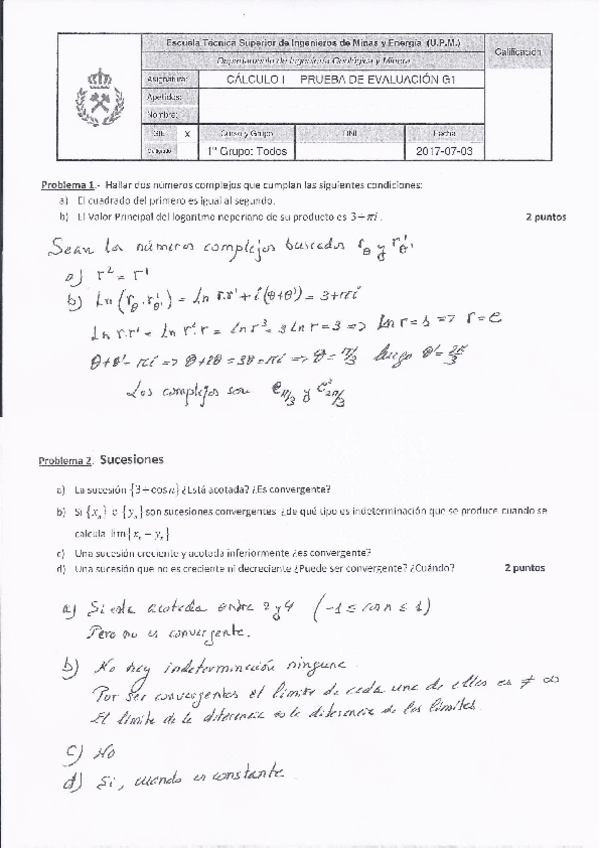 Escuela Técnica Superior de Ingenieros de Minas y Energía (U.P.M.)
Departamento de Ingeniería Geológica y Minera
Calificación
Asignatura: CÁLCULO I PRUEBA DE EVALUACIÓN G1
Apellidos:
Nombre:
x Curso y Grupo DNI Fecha
1º Grupo: Todos 2017-07-03
Problema 1.- Hallar dos números complejos que cumplan las siguientes condiciones:
a) El cuadrado del primero es igual al segundo.
b) El Valor Principal del logaritmo neperiano de su producto es 3+πi. 2 puntos
Sean los números complejos buscados r_θ y r'_θ'
a) r² = r'
b) Ln(r_θ · r'_θ') = Ln r·r' + i(θ+θ') = 3+πi
Ln r.r' = Ln r².r = Ln r³ = 3 Ln r = 3 => Ln r = 1 => r = e
θ+θ' = πi => θ+2θ = 3θ = πi => θ = π/3 luego θ' = 2π/3
Los complejos son e_π/3 y e²_2π/3
Problema 2. Sucesiones
a) La sucesión {3+cos n} ¿Está acotada? ¿Es convergente?
b) Si {xₙ} e {yₙ} son sucesiones convergentes ¿de qué tipo es indeterminación que se produce cuando se
calcula lim{xₙ − yₙ}
c) Una sucesión creciente y acotada inferiormente ¿es convergente?
d) Una sucesión que no es creciente ni decreciente ¿Puede ser convergente? ¿Cuándo? 2 puntos
a) Si esta acotada entre 2 y 4 (-1 ≤ cos n ≤ 1)
Pero no es convergente.
b) No hay indeterminación ninguna
Por ser convergentes el límite de cada una de ellas es ≠ ∞
El límite de la diferencia es la diferencia de los límites.
c) No
d) Si, cuando es constante.